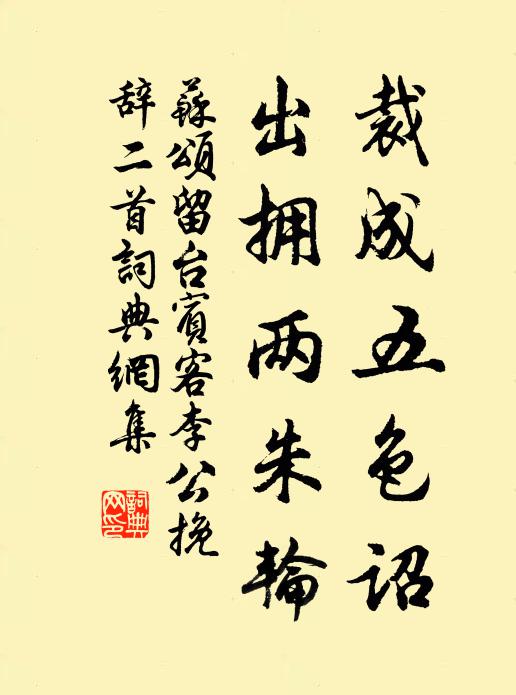 裁成五色詔
出拥两朱輪
蘇頌留台賓客李公挽
辞二首詞典網集
詞典
网印